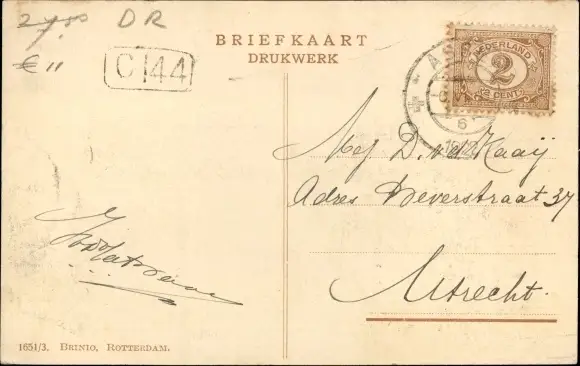 24.50 DR
€ 11
C 44
BRIEFKAART
DRUKWERK
NEDERLAND
2
2 CENT
6
Mej D. v.d. Kaaij
Adres Weverstraat 37
Utrecht.
1651/3. BRINIO, ROTTERDAM.